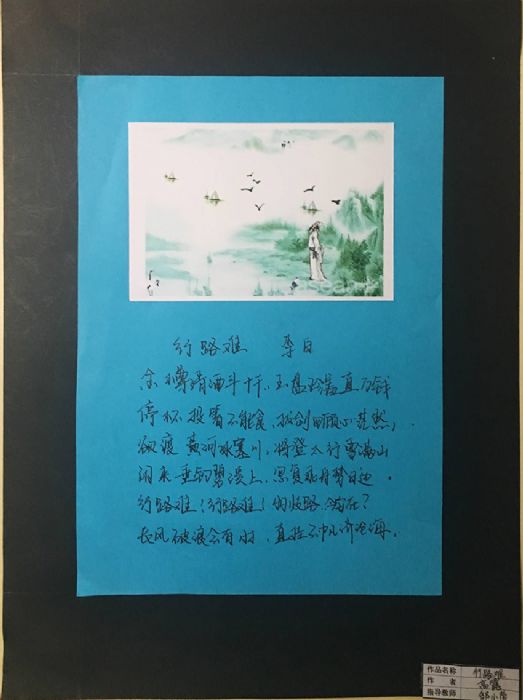 行路难 李白
金樽清酒斗十千、玉盘珍羞直万钱
停杯投箸不能食，拔剑四顾心茫然，
欲渡黄河冰塞川，将登太行雪满山
闲来垂钓碧溪上，忽复乘舟梦日边．
行路难！行路难！多歧路今安在？
长风破浪会有时，直挂云帆济沧海．
作品名称 行路难
作者
指导教师